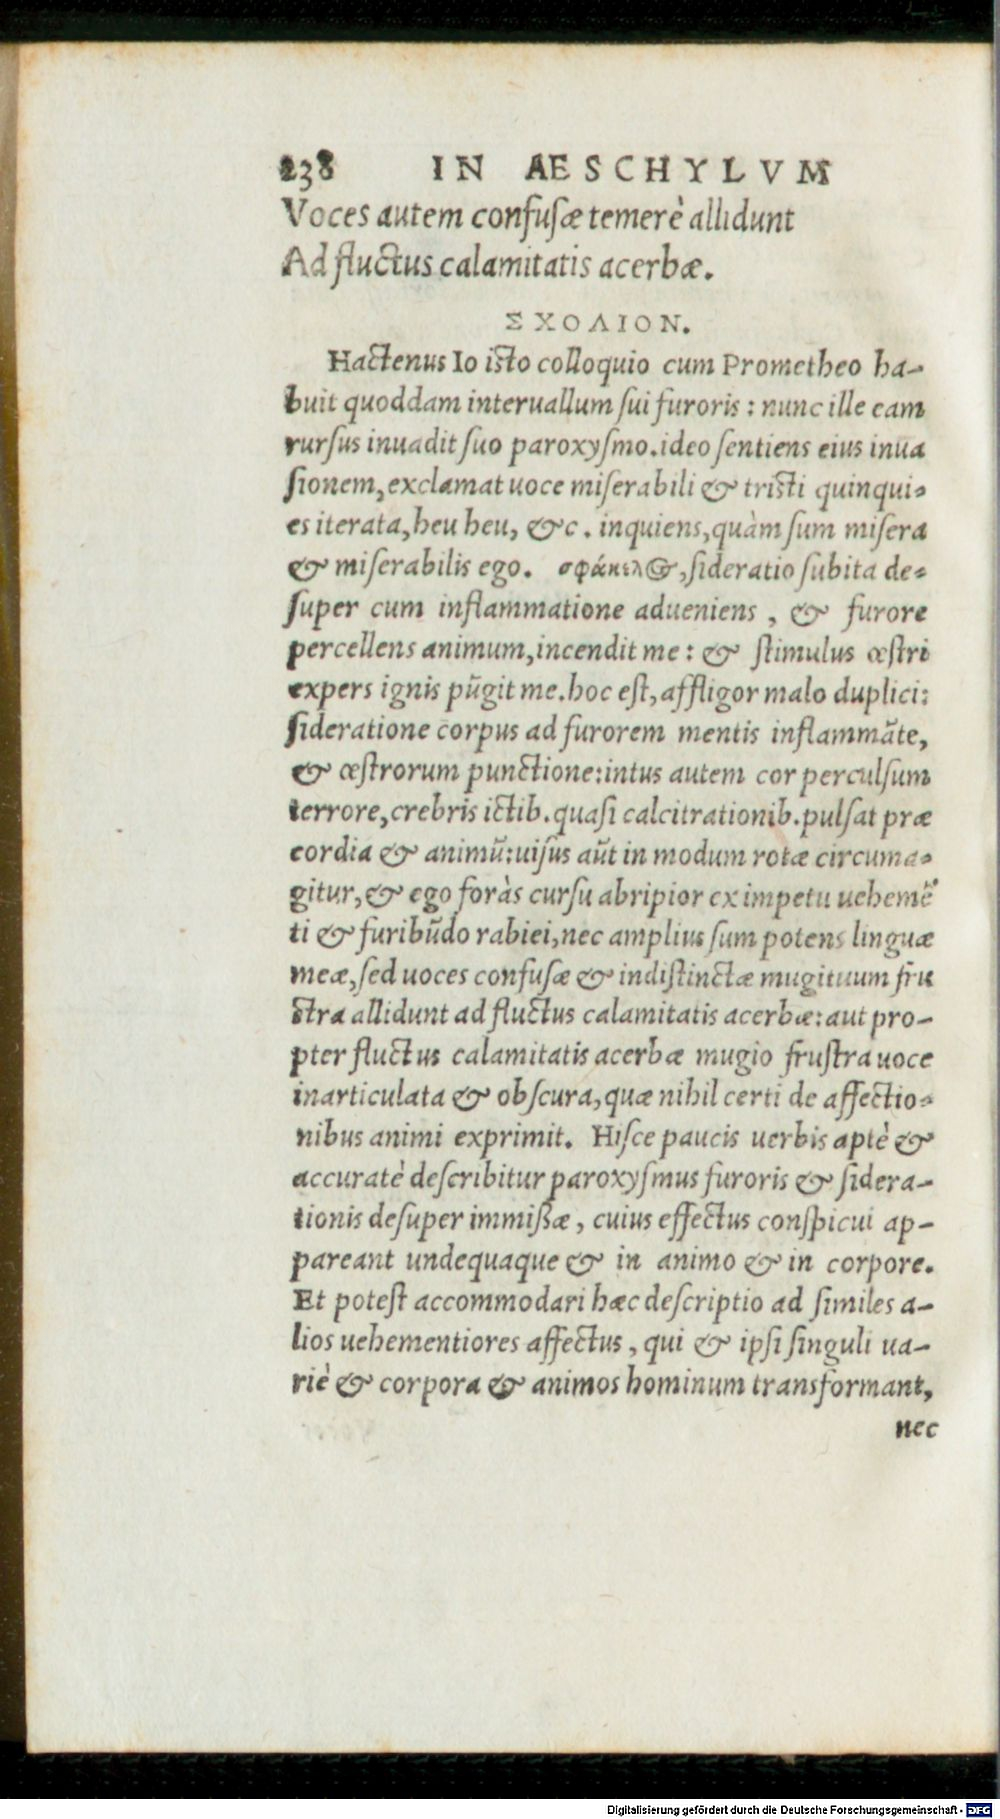 238 IN AESCHYLVM
Voces autem confusæ temerè allidunt
Ad fluctus calamitatis acerbæ.
ΣΧΟΛΙΟΝ.
Hactenus Io isto colloquio cum Prometheo ha-
buit quoddam interuallum sui furoris: nunc ille eam
rursus inuadit suo paroxysmo. ideo sentiens eius inua
sionem, exclamat uoce miserabili & tristi quinqui-
es iterata, heu heu, &c. inquiens, quàm sum misera
& miserabilis ego. σφάκελος, sideratio subita de-
super cum inflammatione adueniens, & furore
percellens animum, incendit me: & stimulus œstri
expers ignis pũgit me. hoc est, affligor malo duplici:
sideratione corpus ad furorem mentis inflammãte,
& œstrorum punctione: intus autem cor perculsum
terrore, crebris ictib. quasi calcitrationib. pulsat præ
cordia & animũ: uisus aũt in modum rotæ circuma-
gitur, & ego foràs cursu abripior ex impetu uehemẽ
ti & furibũdo rabiei, nec amplius sum potens linguæ
meæ, sed uoces confusæ & indistinctæ mugituum fru
stra allidunt ad fluctus calamitatis acerbæ: aut pro-
pter fluctus calamitatis acerbæ mugio frustra uoce
inarticulata & obscura, quæ nihil certi de affectio-
nibus animi exprimit. Hisce paucis uerbis aptè &
accuratè describitur paroxysmus furoris & sidera-
tionis desuper immißæ, cuius effectus conspicui ap-
pareant undequaque & in animo & in corpore.
Et potest accommodari hæc descriptio ad similes a-
lios uehementiores affectus, qui & ipsi singuli ua-
riè & corpora & animos hominum transformant,
nec
Digitalisierung gefördert durch die Deutsche Forschungsgemeinschaft - DFG